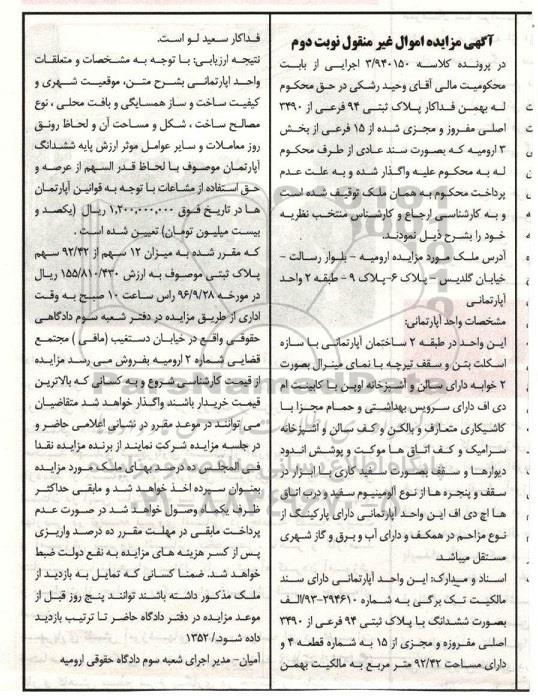 آگهی مزایده اموال غیر منقول نوبت دوم
در پرونده کلاسه ۳/۹۴۰۱۵۰ اجرایی از بابت
محکومیت مالی آقای وحید رشکی در حق محکوم
له بهمن فداکار پلاک ثبتی ۹۴ فرعی از ۳۴۹۰
اصلی مفروز و مجزی شده از ۱۵ فرعی از بخش
۳ ارومیه که بصورت سند عادی از طرف محکوم
له به محکوم علیه واگذار شده و به علت عدم
پرداخت محکوم به همان ملک توقیف شده است
و به کارشناسی ارجاع و کارشناس منتخب نظریه
خود را بشرح ذیل نمودند.
آدرس ملک مورد مزایده ارومیه - بلوار رسالت -
خیابان گلدیس - پلاک ۶-پلاک ۹ - طبقه ۲ واحد
آپارتمانی
مشخصات واحد آپارتمانی:
این واحد در طبقه ۲ ساختمان آپارتمانی با سازه
اسکلت بتن و سقف تیرچه با نمای مینرال بصورت
۲ خوابه دارای سالن و آشپزخانه اوپن با کابینت ام
دی اف دارای سرویس بهداشتی و حمام مجزا با
کاشیکاری متعارف و بالکن و کف سالن و آشپزخانه
سرامیک و کف اتاق ها موکت و پوشش اندود
دیوارها و سقف بصورت سفید کاری با ابزار در
سقف و پنجره ها از نوع آلومینیوم سفید و درب اتاق
ها اچ دی اف این واحد آپارتمانی دارای پارکینگ از
نوع مزاحم در همکف و دارای آب و برق و گاز شهری
مستقل میباشد
اسناد و مدارک: این واحد آپارتمانی دارای سند
مالکیت تک برگی به شماره ۹۳-۲۹۴۶۱۰/الف
بصورت ششدانگ با پلاک ثبتی ۹۴ فرعی از ۳۴۹۰
اصلی مفروزه و مجزی از ۱۵ به شماره قطعه ۴ و
دارای مساحت ۹۲/۴۲ متر مربع به مالکیت بهمن
فداکار سعید لو است.
نتیجه ارزیابی: با توجه به مشخصات و متعلقات
واحد اپارتمانی بشرح متن، موقعیت شهری و
کیفیت ساخت و ساز همسایگی و بافت محلی ، نوع
مصالح ساخت ، شکل و مساحت آن و لحاظ رونق
روز معاملات و سایر عوامل موثر ارزش پایه ششدانگ
آپارتمان موصوف با لحاظ قدر السهم از عرصه و
حق استفاده از مشاعات با توجه به قوانین آپارتمان
ها در تاریخ فوق ۱,۲۰۰,۰۰۰,۰۰۰ ریال (یکصد و
بیست میلیون تومان) تعیین شده است .
که مقرر شده به میزان ۱۲ سهم از ۹۲/۴۲ سهم
پلاک ثبتی موصوف به ارزش ۱۵۵/۸۱۰/۴۳۰ ریال
در مورخه ۹۶/۹/۲۸ راس ساعت ۱۰ صبح به وقت
اداری از طریق مزایده در دفتر شعبه سوم دادگاهی
حقوقی واقع در خیابان دستغیب (مافی) مجتمع
قضایی شماره ۲ ارومیه بفروش می رسد مزایده
از قیمت کارشناسی شروع و به کسانی که بالاترین
قیمت خریدار باشند واگذار خواهد شد متقاضیان
می توانند در موعد مقرر در نشانی اعلامی حاضر و
در جلسه مزایده شرکت نمایند از برنده مزایده نقدا
فی المجلس ده درصد بهای ملک مورد مزایده
بعنوان سپرده اخذ خواهد شد و مابقی حداکثر
ظرف یکماه وصول خواهد شد در صورت عدم
پرداخت مابقی در مهلت مقرر ده درصد واریزی
پس از کسر هزینه های مزایده به نفع دولت ضبط
خواهد شد. ضمنا کسانی که تمایل به بازدید از
ملک مذکور داشته باشند توانند پنج روز قبل از
موعد مزایده در دفتر دادگاه حاضر تا ترتیب بازدید
داده شود./ ۱۳۵۲
آمیان- مدیر اجرای شعبه سوم دادگاه حقوقی ارومیه